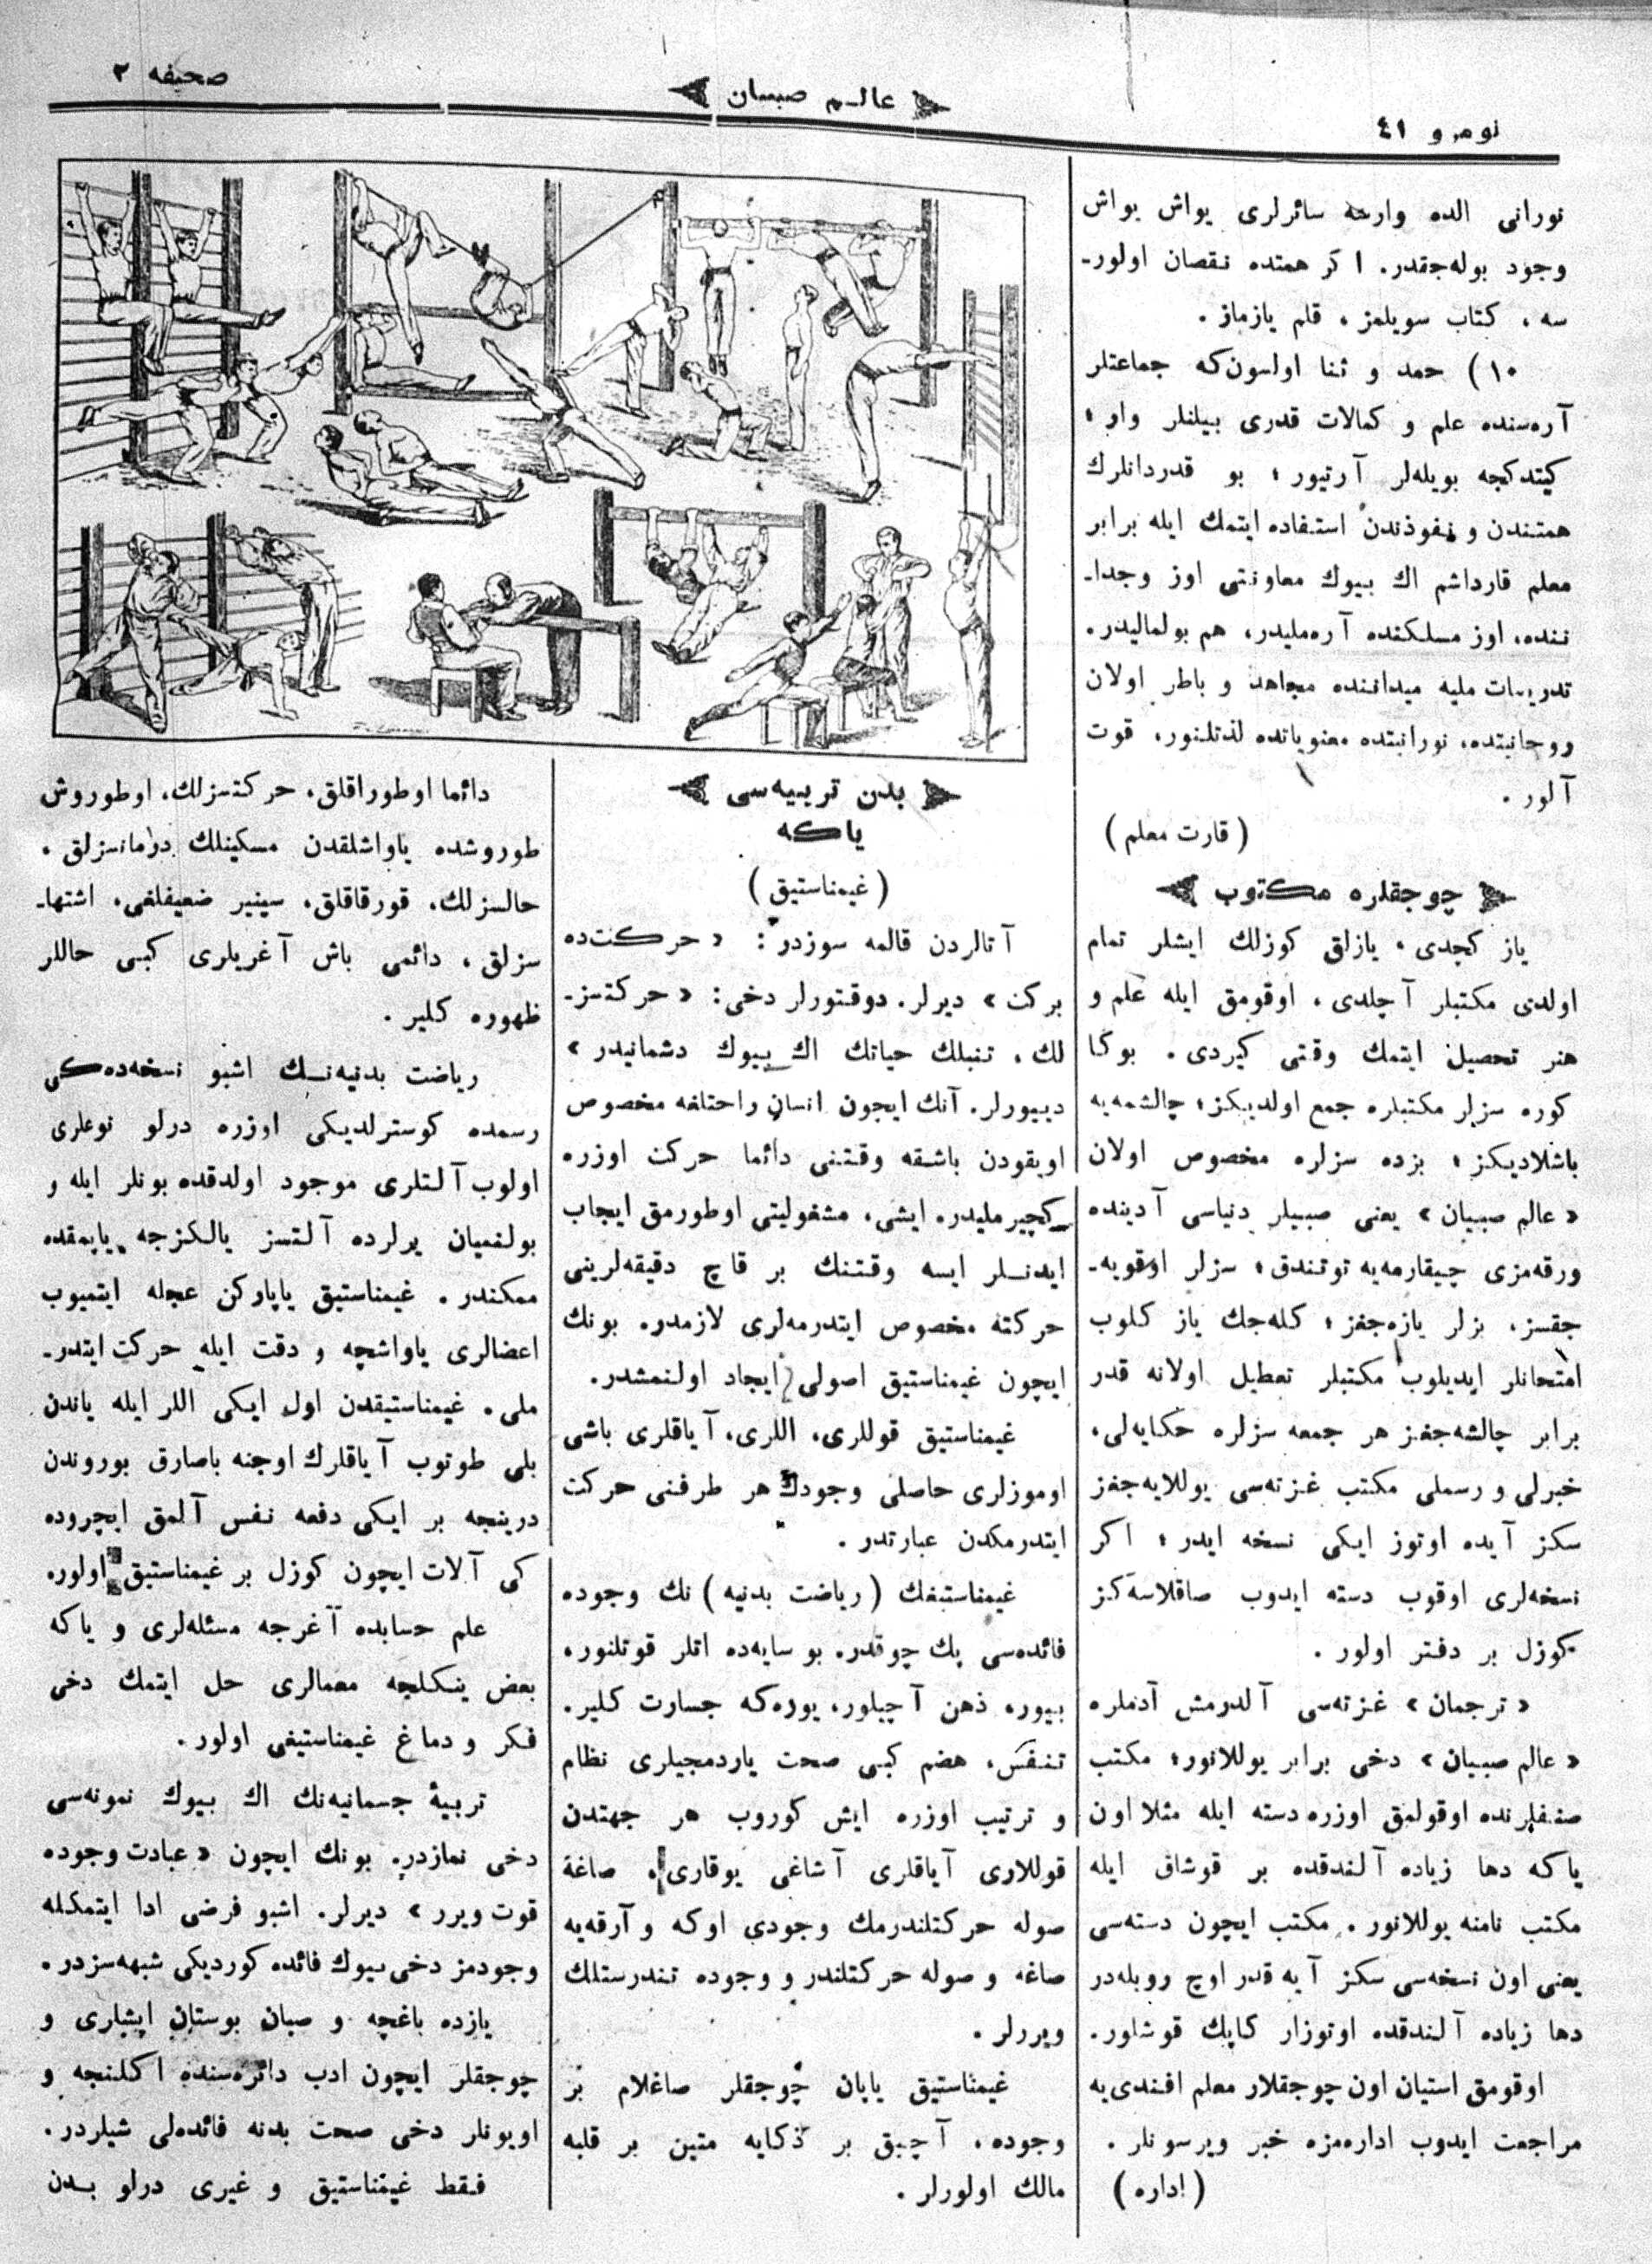 صحیفه ٢
عالم صبیان
نومرو ٤١
نورانی الده وارسه سائرلری یواش یواش
وجود بوله‌جقدر. اکر همتده نقصان اولور-
سه، کتاب سویلمز، قلم یازماز.
١٠) حمد و ثنا اولسون‌که جماعتلر
آره‌سنده علم و کمالات قدری بیلنلر وار؛
کیتدکچه بویله‌لر آرتیور؛ بو قدردانلرك
همتندن و نفوذندن استفاده ایتمك ایله برابر
معلم قارداشم اك بیوك معاونتی اوز وجدا-
ننده، اوز مسلکنده آره‌ملیدر، هم بولمالیدر.
تدریسات ملیه میداننده مجاهد و باطر اولان
روحانیتده، نورانیتده معنویاتده لذتلنور، قوت
آلور.
(قارت معلم)
چوجقلره مکتوب
یاز کچدی، یازلق کوزلك ایشلر تمام
اولدی مکتبلر آچلدی، اوقومق ایله علم و
هنر تحصیل ایتمك وقتی کیردی. بوکا
کوره سزلر مکتبلره جمع اولدیکز؛ چالشمه‌یه
باشلادیکز؛ بزده سزلره مخصوص اولان
«عالم صبیان» یعنی صبیلر دنیاسی آدینده
ورقه‌مزی چیقارمه‌یه توتندق؛ سزلر اوقویه-
جقسز، بزلر یازه‌جغز؛ کله‌جك یاز کلوب
امتحانلر ایدیلوب مکتبلر تعطیل اولانه قدر
برابر چالشه‌جغز هر جمعه سزلره حکایه‌لی،
خبرلی و رسملی مکتب غزته‌سی یوللایه‌جغز
سکز آیده اوتوز ایکی نسخه ایدر؛ اکر
نسخه‌لری اوقوب دسته ایدوب صاقلاسه‌کز
کوزل بر دفتر اولور.
«ترجمان» غزته‌سی آلدرمش آدملره
«عالم صبیان» دخی برابر یوللانور؛ مکتب
صنفلرنده اوقولمق اوزره دسته ایله مثلا اون
یاکه دها زیاده آلندقده بر قوشاق ایله
مکتب نامنه یوللانور. مکتب ایچون دسته‌سی
یعنی اون نسخه‌سی سکز آیه قدر اوچ روبله‌در
دها زیاده آلندقده اوتوزار کاپك قوشلور.
اوقومق استیان اون چوجقلار معلم افندی‌یه
مراجعت ایدوب اداره‌مزه خبر ویرسونلر.
(اداره)
بدن تربیه‌سی
یاکه
(غیمناستیق)
آتالردن قالمه سوزدر: «حرکت‌ده
برکت» دیرلر. دوقتورلر دخی: «حرکتسز-
لك، تنبلك حیاتك اك بیوك دشمانیدر»
دییورلر. آنك ایچون انسان راحتلغه مخصوص
اویقودن باشقه وقتنی دائما حرکت اوزره
کچیرملیدر. ایشی، مشغولیتی اوطورمق ایجاب
ایدنلر ایسه وقتنك بر قاچ دقیقه‌لرینی
حرکته مخصوص ایتدرمه‌لری لازمدر. بونك
ایچون غیمناستیق اصولی ایجاد اولنمشدر.
غیمناستیق قوللری، اللری، آیاقلری باشی
اوموزلری حاصلی وجودك هر طرفنی حرکت
ایتدرمکدن عبارتدر.
غیمناستیغك (ریاضت بدنیه) نك وجوده
فائده‌سی پك چوقدر. بو سایه‌ده اتلر قوتلنور،
بیور، ذهن آچیلور، یوره‌که جسارت کلیر.
تنفس، هضم کبی صحت یاردمجیلری نظام
و ترتیب اوزره ایش کوروب هر جهتدن
قوللاری آیاقلری آشاغی یوقاری، صاغه
صوله حرکتلندرمك وجودی اوکه و آرقه‌یه
صاغه و صوله حرکتلندر و وجوده تندرستلك
ویررلر.
غیمناستیق یاپان چوجقلر صاغلام بر
وجوده، آچیق بر ذکایه متین بر قلبه
مالك اولورلر.
دائما اوطوراقلق، حرکتسزلك، اوطوروش
طوروشده یاواشلقدن مسکینلك درمانسزلق،
حالسزلك، قورقاقلق، سینیر ضعیفلغی، اشتها-
سزلق، دائمی باش آغریلری کبی حاللر
ظهوره کلیر.
ریاضت بدنیه‌نك اشبو نسخه‌ده‌کی
رسمده کوسترلدیکی اوزره درلو نوعلری
اولوب آلتلری موجود اولدقده بونلر ایله و
بولنمیان یرلرده آلتسز یالکزجه یاپمقده
ممکندر. غیمناستیق یاپارکن عجله ایتمیوب
اعضالری یاواشچه و دقت ایله حرکت ایتدر-
ملی. غیمناستیقدن اول ایکی اللر ایله یاندن
بلی طوتوب آیاقلرك اوجنه باصارق بوروندن
درینجه بر ایکی دفعه نفس آلمق ایچروده
کی آلات ایچون کوزل بر غیمناستیق اولور.
علم حسابده آغرجه مسئله‌لری و یاکه
بعض ینکلچه معمالری حل ایتمك دخی
فکر و دماغ غیمناستیغی اولور.
تربیهٔ جسمانیه‌نك اك بیوك نمونه‌سی
دخی نمازدر. بونك ایچون «عبادت وجوده
قوت ویرر» دیرلر. اشبو فرضی ادا ایتمکله
وجودمز دخی بیوك فائده کوردیکی شبهه‌سزدر.
یازده باغچه و صبان بوستان ایشلری و
چوجقلر ایچون ادب دائره‌سنده اکلنجه و
اویونلر دخی صحت بدنه فائده‌لی شیلردر.
فقط غیمناستیق و غیری درلو بدن